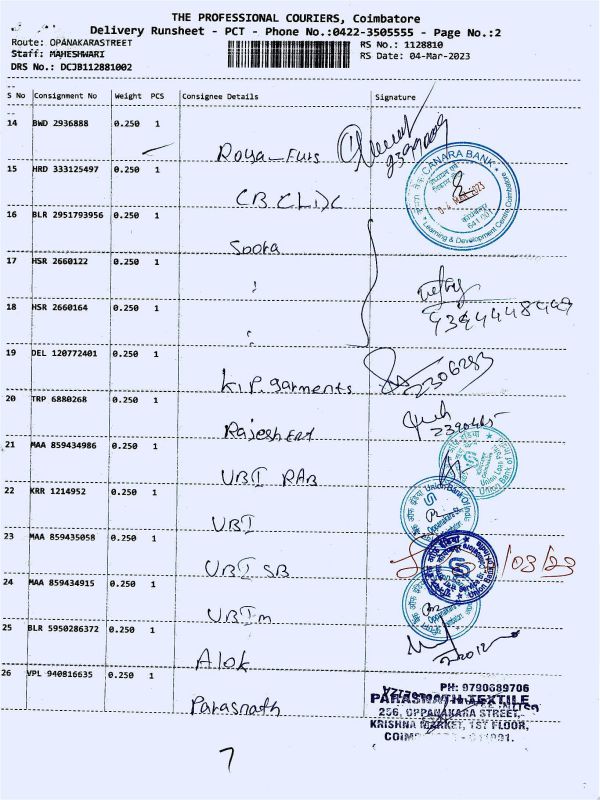 THE PROFESSIONAL COURIERS, Coimbatore
Delivery Runsheet - PCT - Phone No.:0422-3505555 - Page No.:2
Route: OPANAKARASTREET
RS No.: 1128810
Staff: MAHESHWARI
RS Date: 04-Mar-2023
DRS No.: DCJB112881002
S No Consignment No Weight PCS Consignee Details Signature
14 BWD 2936888 0.250 1
Roya Furs
15 HRD 333125497 0.250 1
CANARA BANK
Learning & Development Centre Coimbatore
641 001
16 BLR 2951793956 0.250 1
17 HSR 2660122 0.250 1
18 HSR 2660164 0.250 1
9394448449
19 DEL 120772401 0.250 1
K.P. garments 2306283
20 TRP 6880268 0.250 1
Rajesh ERT
21 MAA 859434986 0.250 1
UBI RAB
22 KRR 1214952 0.250 1
UBI
Union Bank Of India
23 MAA 859435058 0.250 1
UBI SB /03/23
24 MAA 859434915 0.250 1
UBI m
25 BLR 5950286372 0.250 1
Alok
26 VPL 940816635 0.250 1
Parasnath
PH: 9790689706
PARASNATH TEXTILE
256, OPPANAKARA STREET,
KRISHNA MARKET, 1ST FLOOR,
7